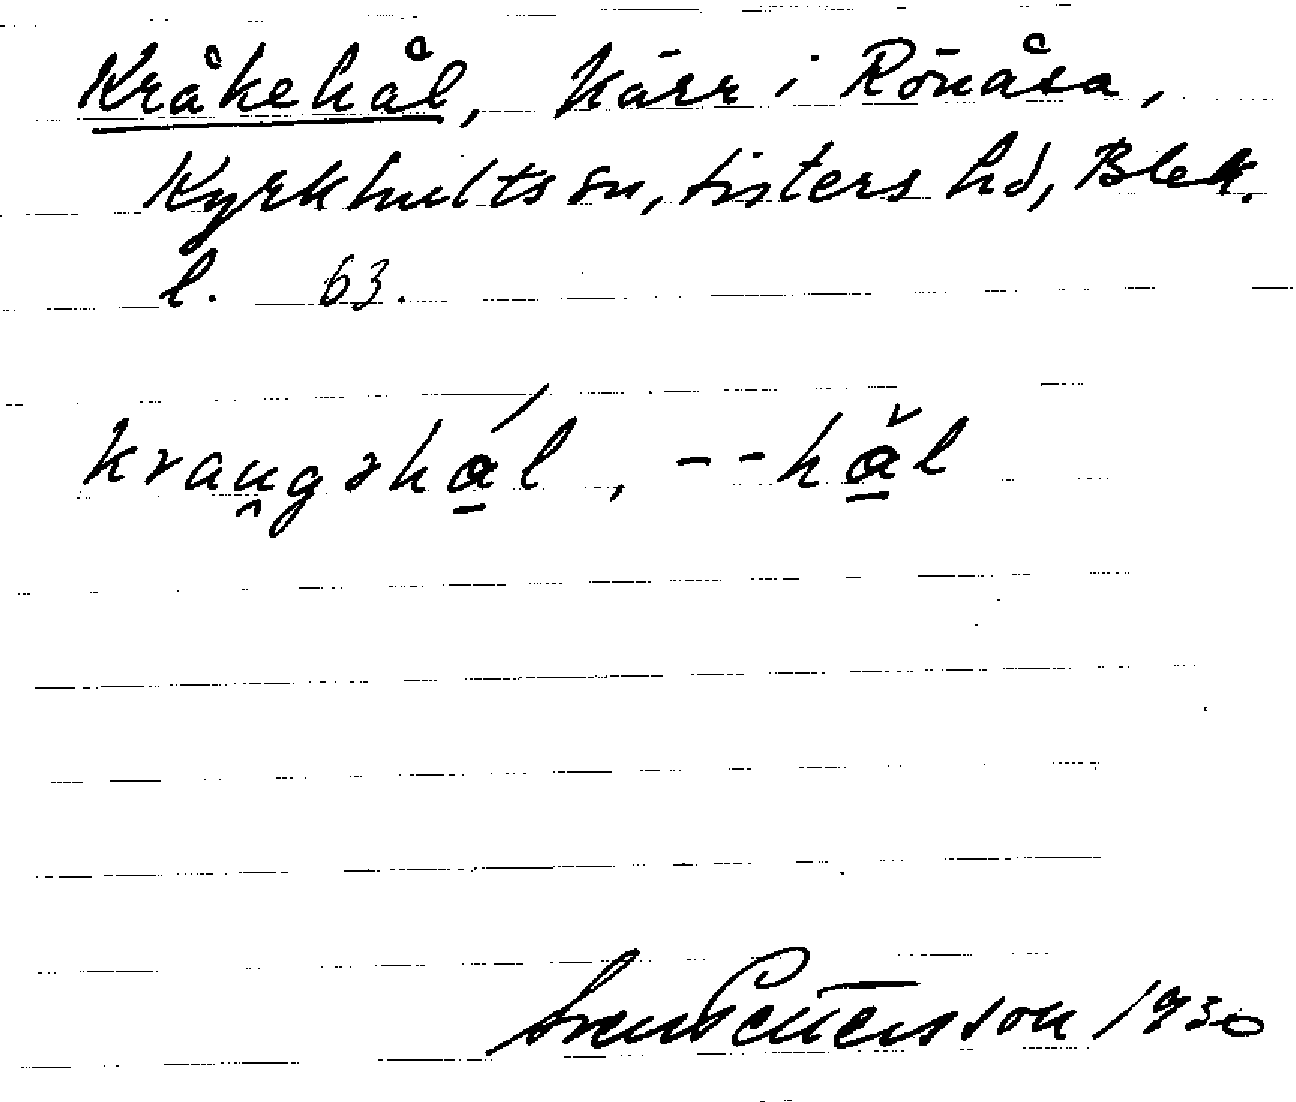 Kråkehål, kärr i Rönåsa,
Kyrkhults sn, Listers hd, Blek.
l. 63.
kraugshál, --hål
Sven Pettersson 1930